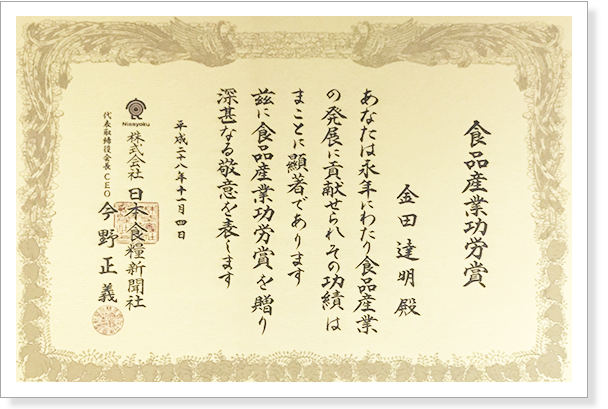 食品産業功労賞
金田達明殿
あなたは永年にわたり食品産業
の発展に貢献せられその功績は
まことに顕著であります
茲に食品産業功労賞を贈り
深甚なる敬意を表します
平成二十八年十一月四日
Nissyoku
株式会社日本食糧新聞社
代表取締役会長CEO今野正義